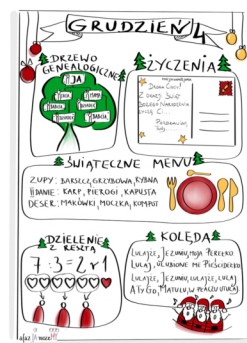 GRUDZIEŃ 4
DRZEWO
GENEALOGICZNE
JA
MAMA
BABCIA
DZIADEK
BABCIA
DZIADEK
ŻYCZENIA
DROGA CIOCIU!
Z OKAZJI ŚWIĄT
BOŻEGO NARODZENIA
ŻYCZĘ CI...
POZDRAWIAM,
ŚWIĄTECZNE MENU
ZUPY: BARSZCZ, GRZYBOWA, RYBNA
II DANIE: KARP, PIEROGI, KAPUSTA
DESER: MAKÓWKI, MOCZKA, KOMPOT
DZIELENIE
Z RESZTĄ
7:3=2 r 1
KOLĘDA
LULAJŻE, JEZUNIU, MOJA PEREŁKO
LULAJ, ULUBIONE ME PIEŚCIDEŁKO
LULAJŻE, JEZUNIU, LULAJŻE, LULAJ
A TY GO, MATULU, W PŁACZU UTULAJ.